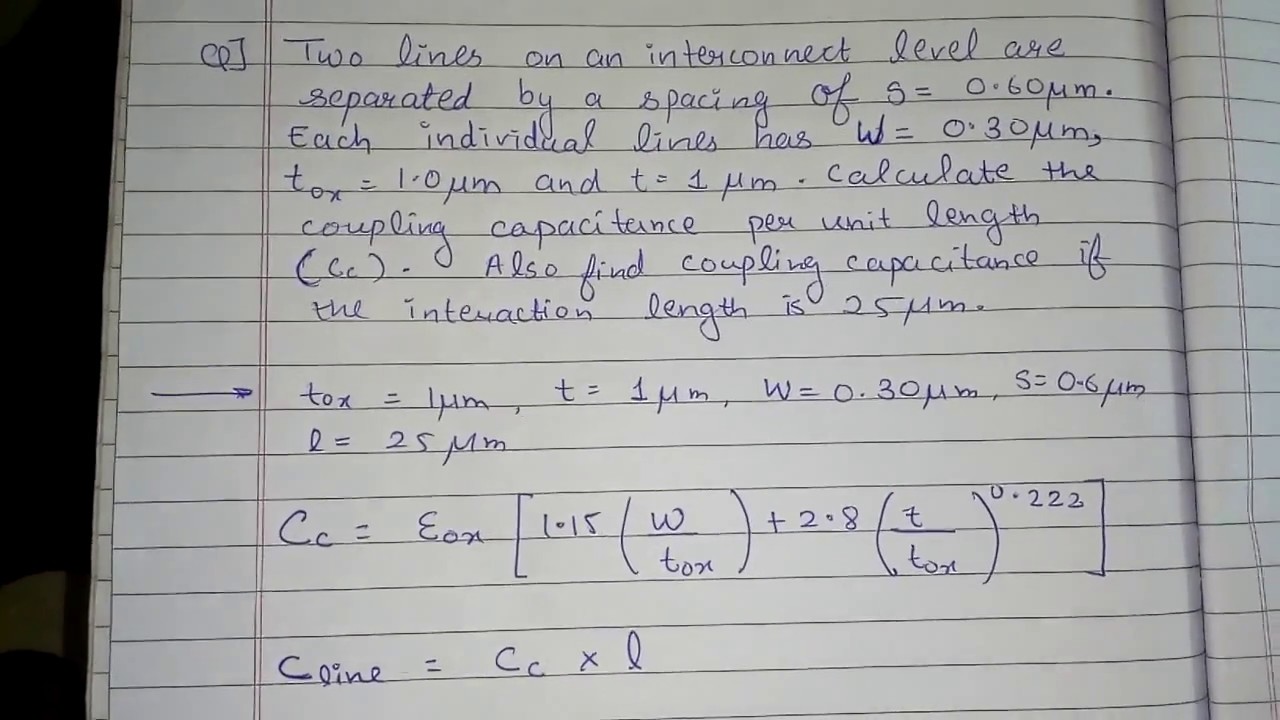 Q] Two lines on an interconnect level are
separated by a spacing of S = 0.60μm.
Each individual lines has W = 0.30μm,
tox = 1.0 μm and t = 1 μm. calculate the
coupling capacitance per unit length
(Cc). Also find coupling capacitance if
the interaction length is 25μm.
→ tox = 1μm, t = 1μm, W = 0.30μm, S = 0.6μm
l = 25 μm
Cc = εox [1.15 (w/tox) + 2.8 (t/tox)^0.222]
Cline = Cc × l